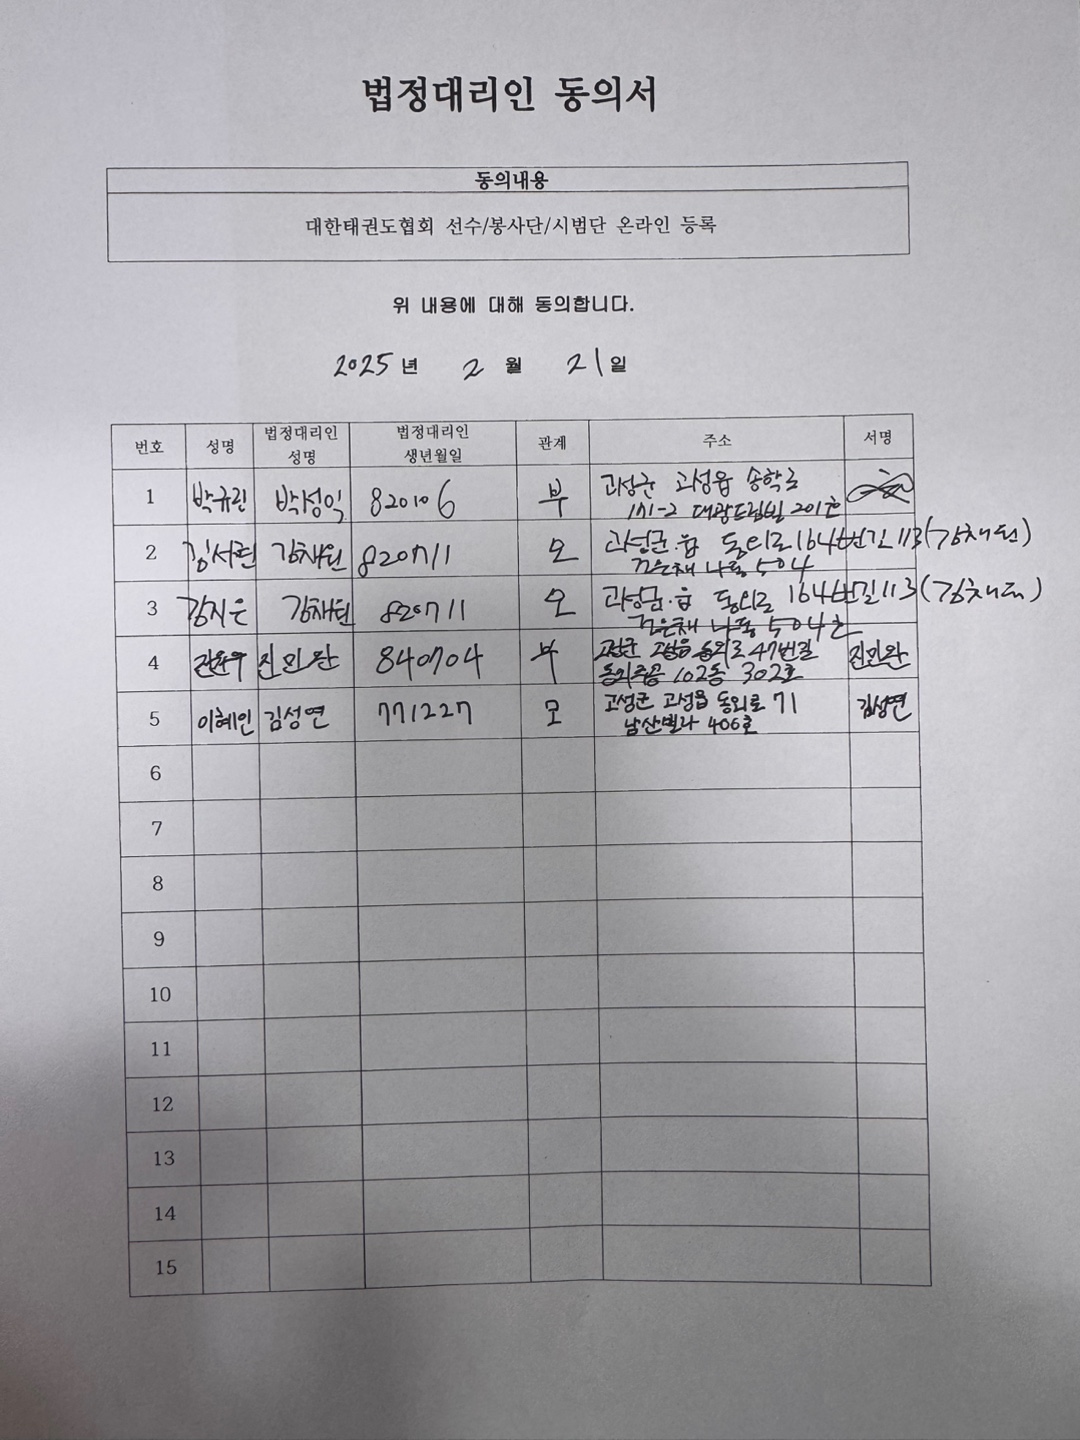 법정대리인 동의서
동의내용
대한태권도협회 선수/봉사단/시범단 온라인 등록
위 내용에 대해 동의합니다.
2025년 2월 21일
번호 성명 법정대리인 성명 법정대리인 생년월일 관계 주소 서명
1 박규린 박성익 820106 부 고성군 고성읍 송학로
171-2 대광드림빌 201호
2 김서린 김채원 820711 모 고성군.읍 동외로 164번길 113 (김채원)
나동 504
3 김지은 김채원 820711 모 고성군.읍 동외로 164번길 113 (김채원)
나동 504호
4 진민완 840704 부 고성군 고성읍 동외로 47번길 진민완
동외주공 102동 302호
5 이혜인 김성연 771227 모 고성군 고성읍 동외로 71 김성연
남산빌라 406호
6
7
8
9
10
11
12
13
14
15